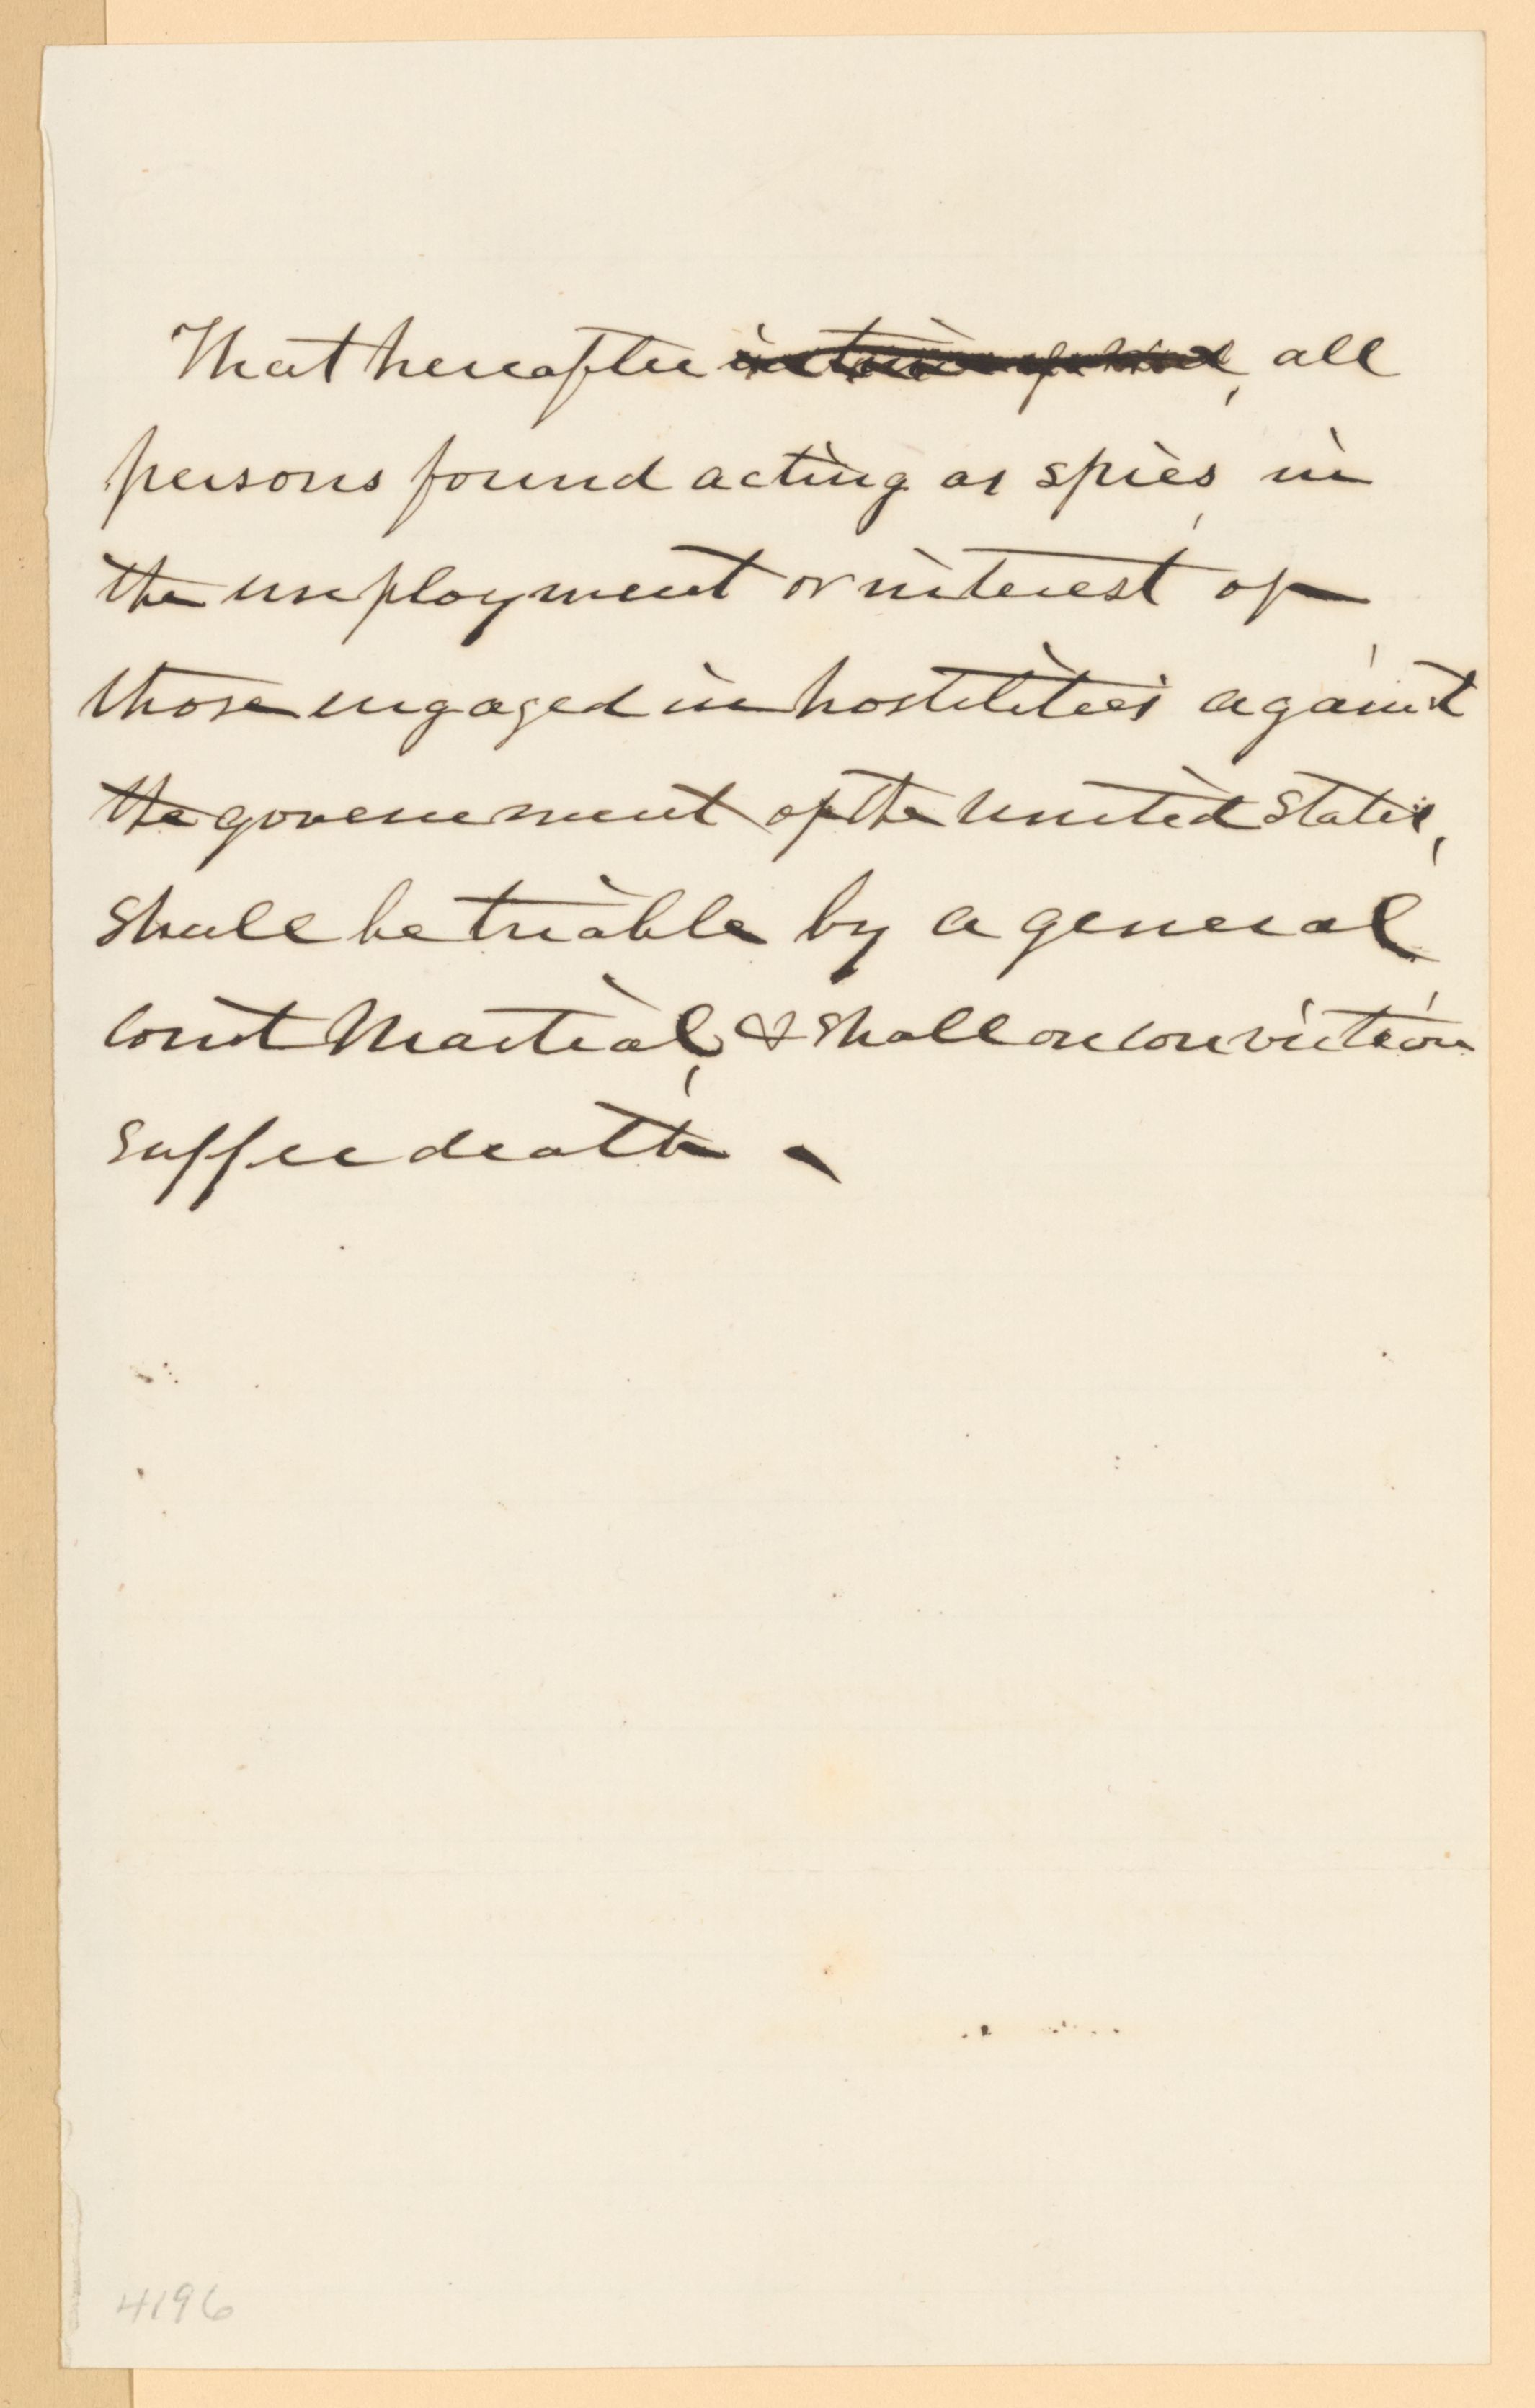 That hereafter in time of war, all
persons found acting as spies, in
the employment or interest of
those engaged in hostilities against
the government of the United States,
shall be triable by a general
Court Martial, & shall on conviction
suffer death.
4196